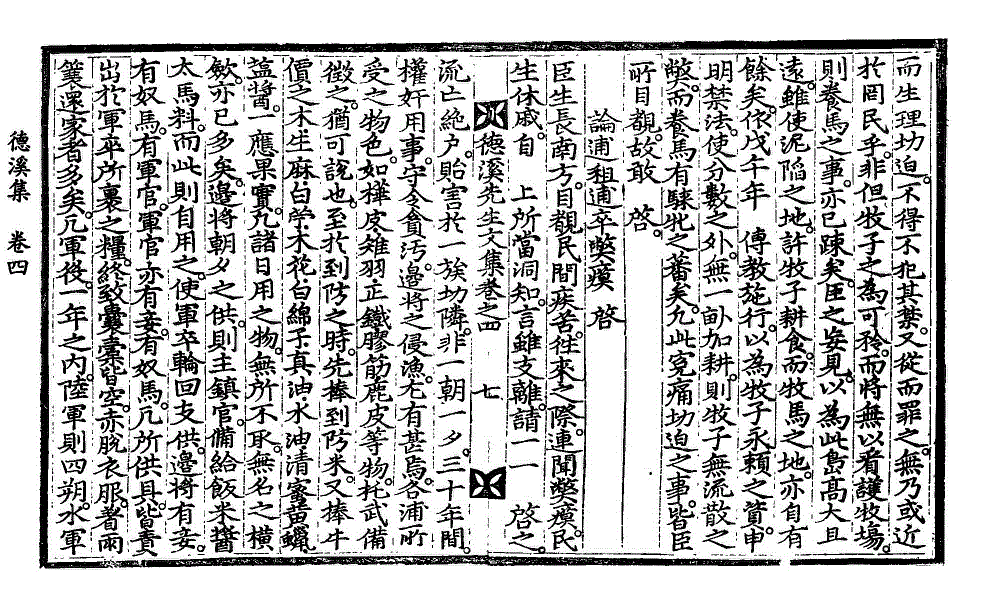 而生理切迫。不得不犯其禁。又從而罪之。無乃或近
於罔民乎。非但牧子之爲可矜。而將無以看護牧場。
則養馬之事。亦已踈矣。臣之妄見。以爲此島高大且
遠。雖使泥陷之地。許牧子耕食。而牧馬之地。亦自有
餘矣。依戊午年 傳敎施行。以爲牧子永賴之資。申
明禁法。使分數之外。無一畝加耕。則牧子無流散之
弊。而養馬有騋牝之蕃矣。凡此寃痛切迫之事。皆臣
所目覩。故敢 啓。
論逋租逋卒弊瘼 啓
臣生長南方。目覩民間疾苦。往來之際。連聞弊瘼。民
生休戚。自 上所當洞知。言雖支離。請一一 啓之。
德溪先生文集卷之四 七
流亡絶戶。貽害於一族切隣。非一朝一夕。三十年間。
權奸用事。守令貪汚。邊將之侵漁。尤有甚焉。各浦所
受之物色。如樺皮雉羽正鐵膠筋鹿皮等物。托武備
徵之。猶可說也。至於到防之時。先捧到防米。又捧牛
價之木。生麻白苧木花白綿子眞油水油淸蜜黃蠟
鹽醬。一應果實。凡諸日用之物。無所不取。無名之橫
斂。亦已多矣。邊將朝夕之供。則主鎭官。備給飯米醬
太馬料。而此則自用之。使軍卒輪回支供。邊將有妾。
有奴馬。有軍官。軍官亦有妾。有奴馬。凡所供具。皆責
出於軍卒所裹之糧。終致囊橐皆空。赤脫衣服。着雨
簑還家者多矣。凡軍役。一年之內。陸軍則四朔。水軍
德溪集 卷四